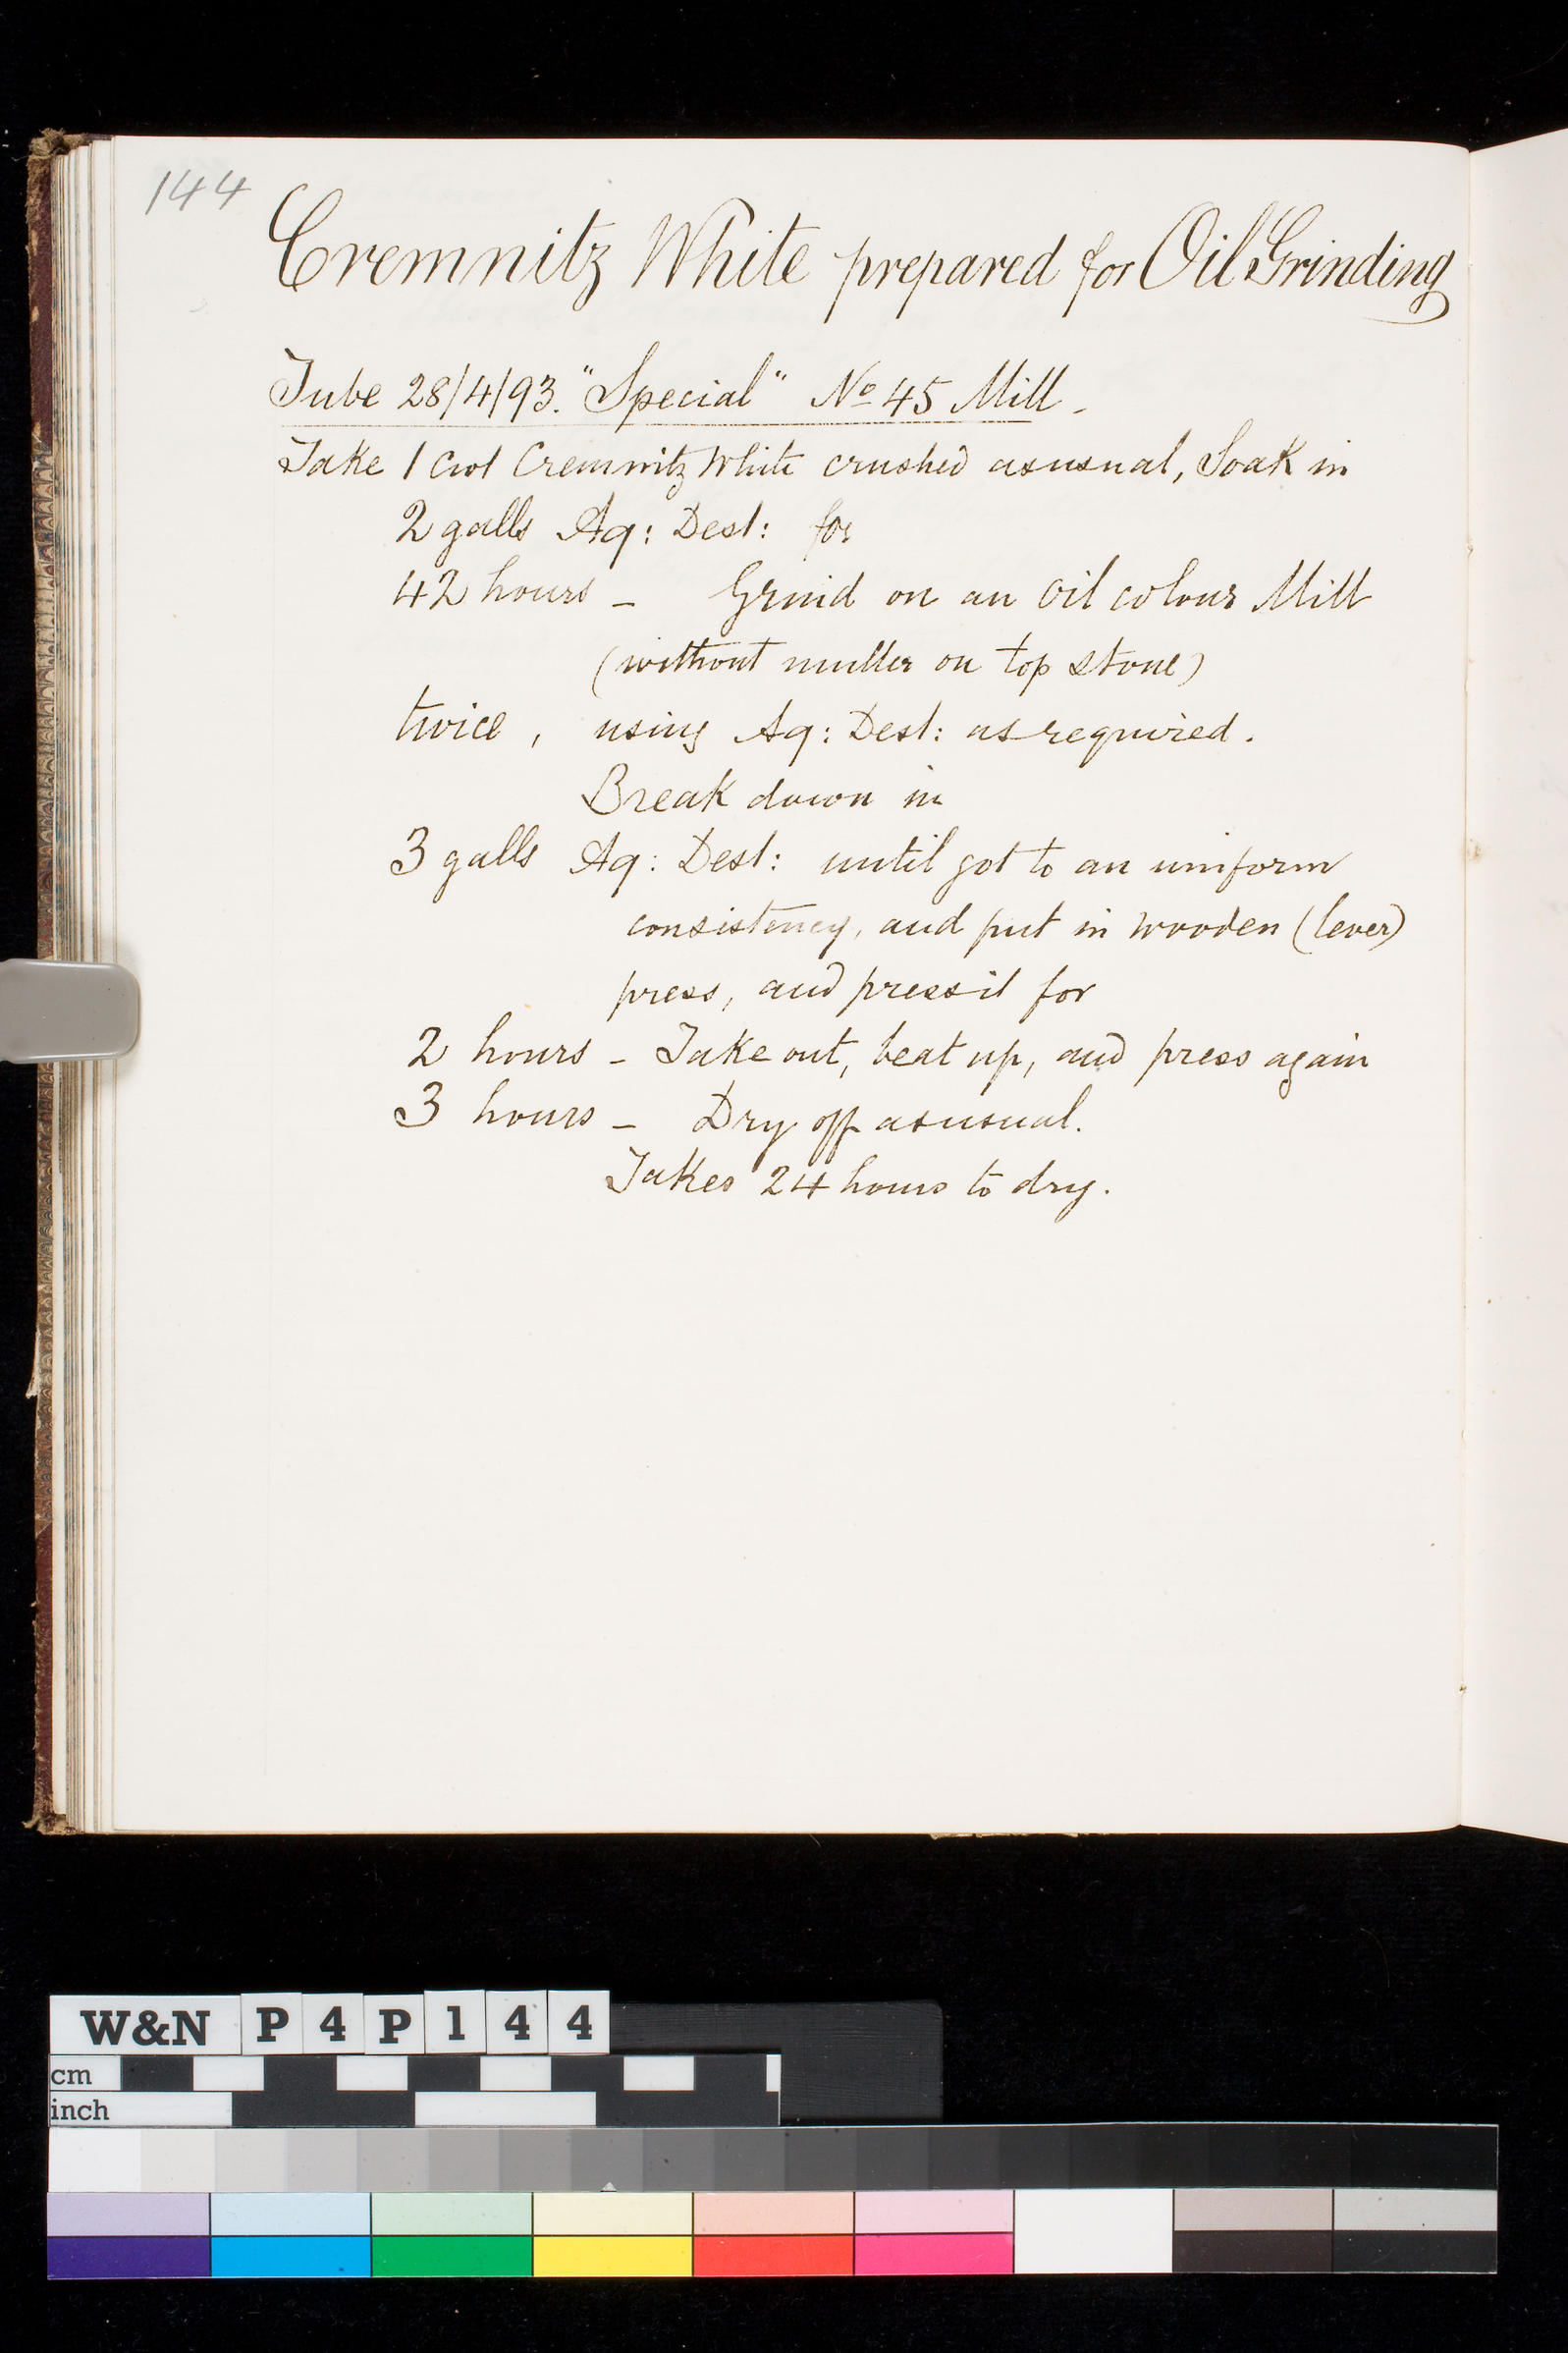 144
Cremnitz White prepared for Oil Grinding
Tube 28/4/93. "Special" No 45 Mill -
Take 1 Cwt Cremnitz White crushed as usual, Soak in
2 galls Aq: Dest: for
42 hours - Grind on an Oil colour Mill
(without muller on top stone)
twice, using Aq: Dest: as required.
Break down in
3 galls Aq: Dest: until got to an uniform
consistency, and put in wooden (lever)
press, and press it for
2 hours - Take out, beat up, and press again
3 hours - Dry off as usual.
Takes 24 hours to dry.
W&N P4P144
cm
inch